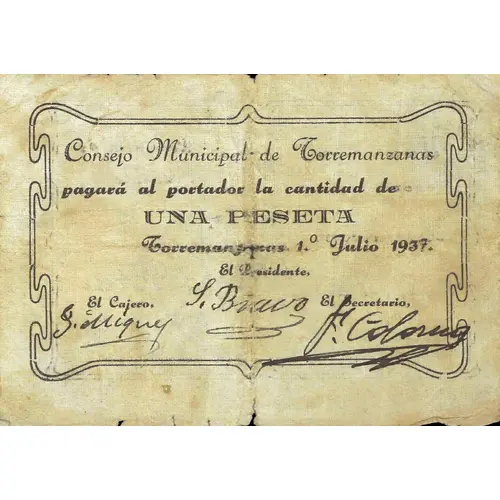 Consejo Municipal de Torremanzanas
pagará al portador la cantidad de
UNA PESETA
Torremanzanas 1.º Julio 1937.
El Presidente,
El Cajero, S. Bravo El Secretario,